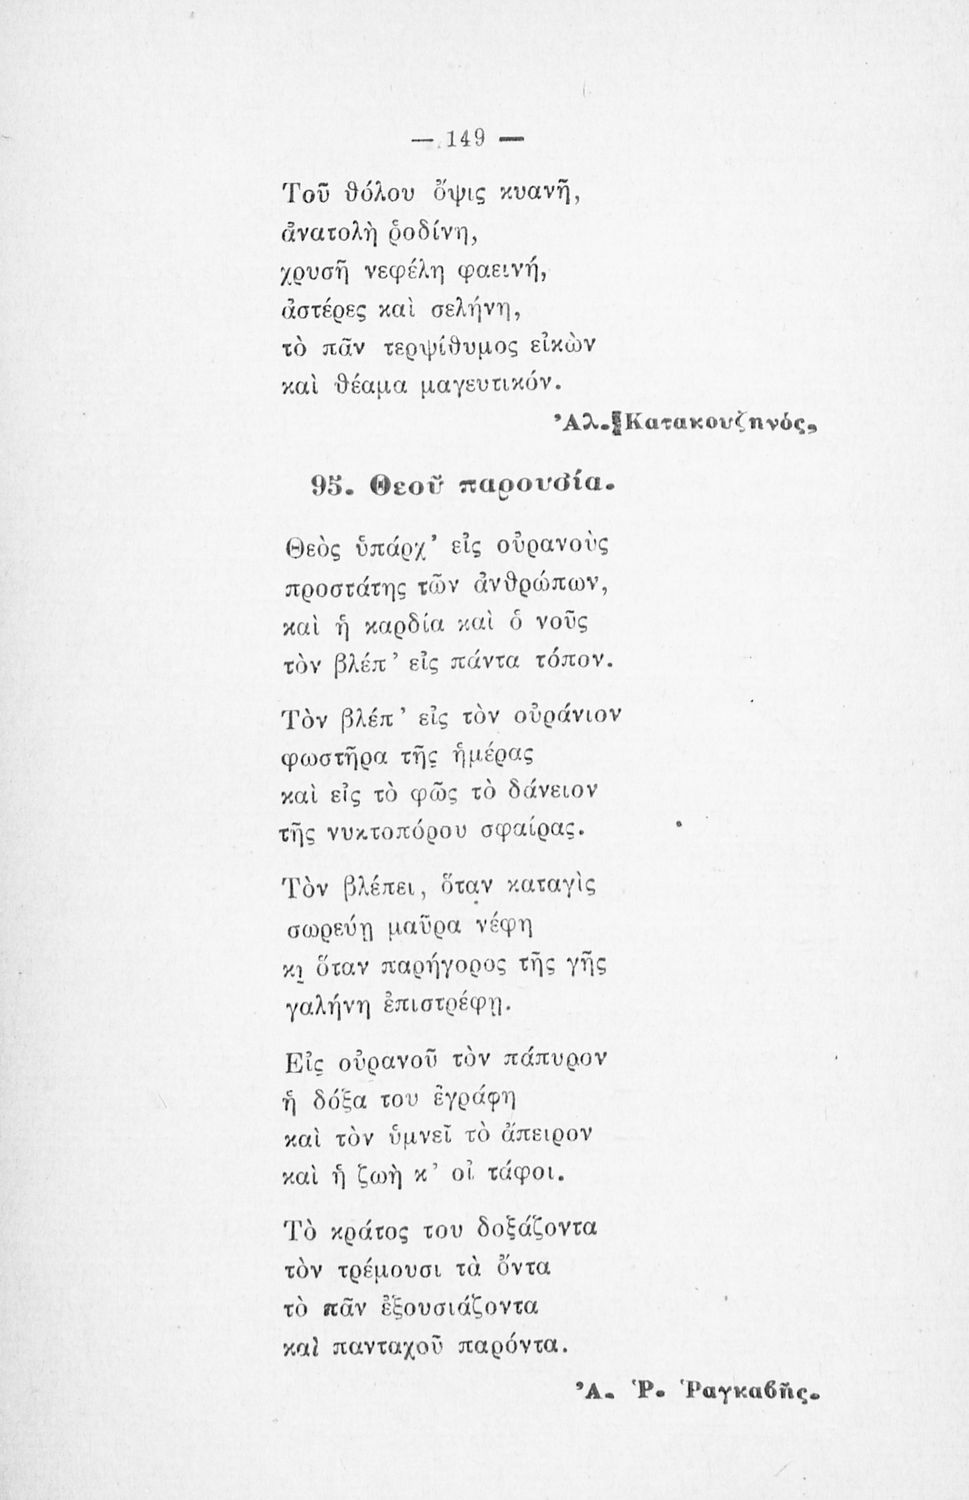 — 149 —
Τοῦ θόλου ὄψις κυανῆ,
ἀνατολὴ ῥοδίνη,
χρυσῆ νεφέλη φαεινή,
ἀστέρες καὶ σελήνη,
τὸ πᾶν τερψίθυμος εἰκὼν
καὶ θέαμα μαγευτικόν.
Ἀλ. Κατακουζηνός,
95. Θεοῦ παρουσία.
Θεὸς ὑπάρχ’ εἰς οὐρανοὺς
προστάτης τῶν ἀνθρώπων,
καὶ ἡ καρδία καὶ ὁ νοῦς
τὸν βλέπ’ εἰς πάντα τόπον.
Τὸν βλέπ’ εἰς τὸν οὐράνιον
φωστῆρα τῆς ἡμέρας
καὶ εἰς τὸ φῶς τὸ δάνειον
τῆς νυκτοπόρου σφαίρας.
Τὸν βλέπει, ὅταν καταγὶς
σωρεύῃ μαῦρα νέφη
κι ὅταν παρήγορος τῆς γῆς
γαλήνη ἐπιστρέφῃ.
Εἰς οὐρανοῦ τὸν πάπυρον
ἡ δόξα του ἐγράφη
καὶ τὸν ὑμνεῖ τὸ ἄπειρον
καὶ ἡ ζωὴ κ’ οἱ τάφοι.
Τὸ κράτος του δοξάζοντα
τὸν τρέμουσι τὰ ὄντα
τὸ πᾶν ἐξουσιάζοντα
καὶ πανταχοῦ παρόντα.
Ἀ. Ῥ. Ῥαγκαβῆς.